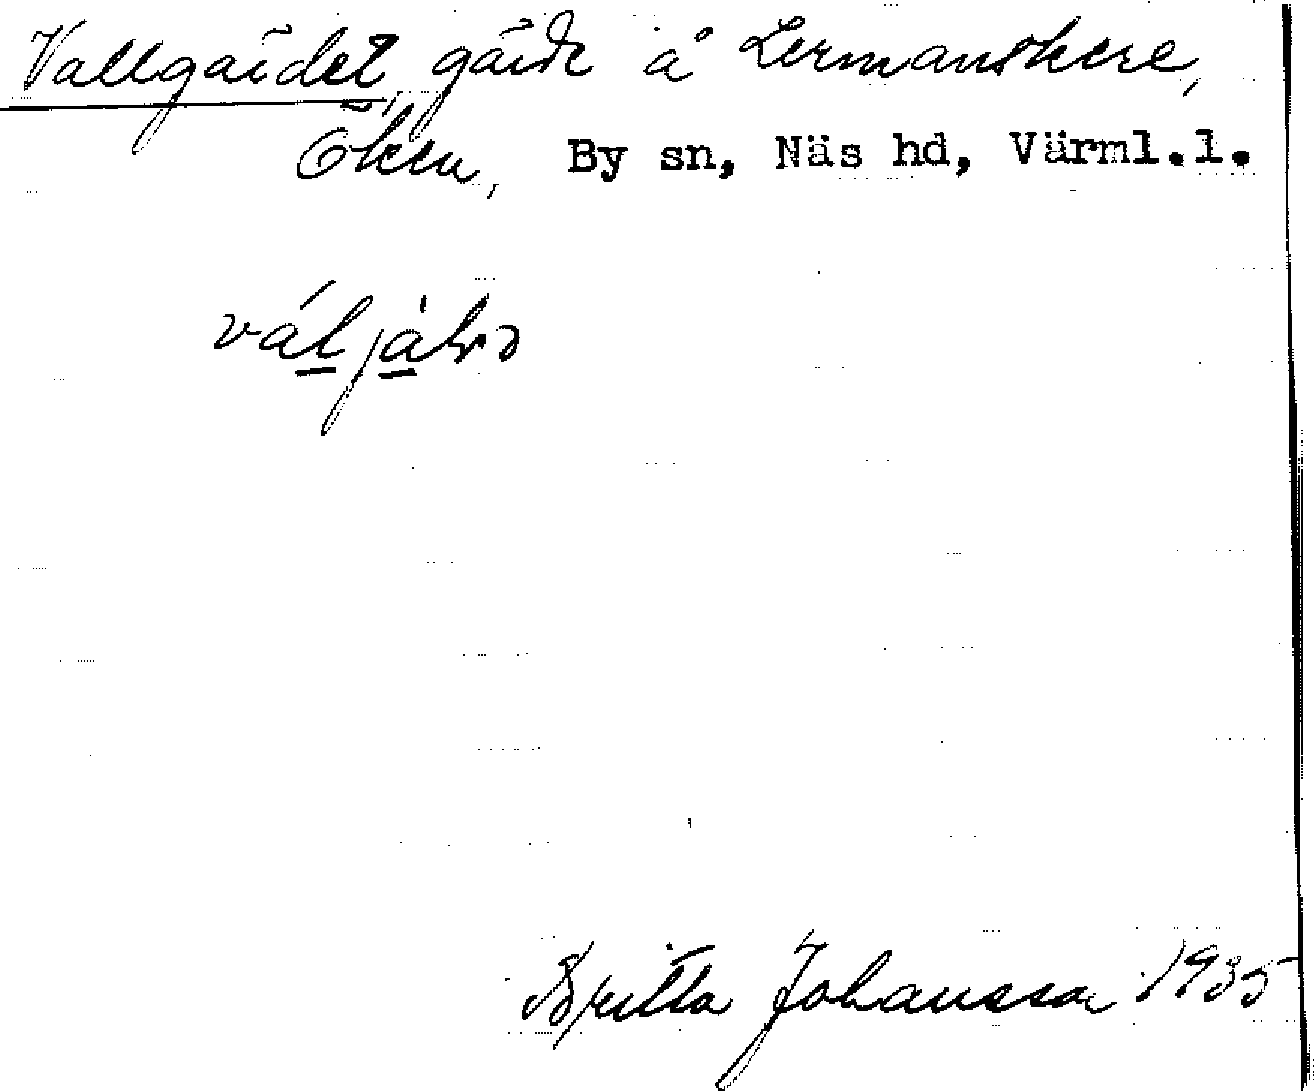 Vallgärdet, gärde å Lermanskere,
Öken, By sn, Näs hd, Värml.l.
Britta Johansson 1935